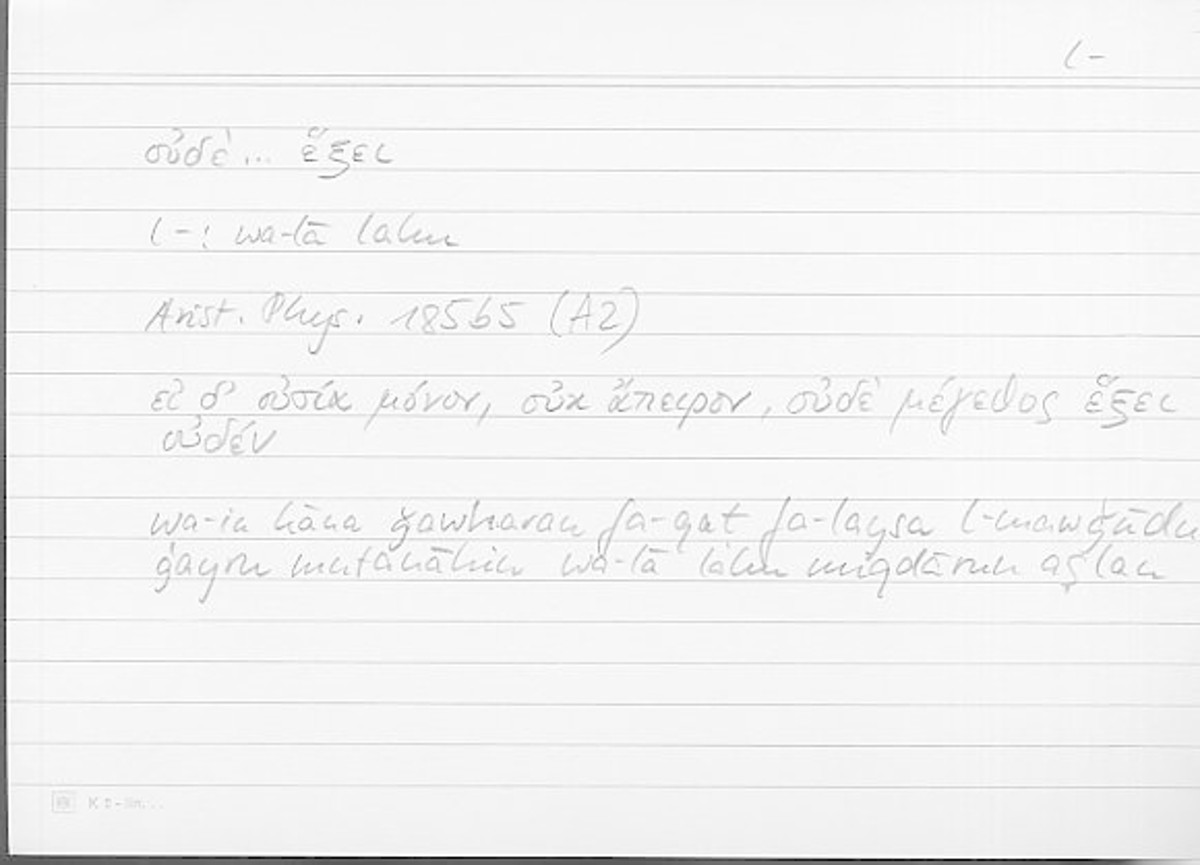 l-
οὐδὲ... ἕξει
l-: wa-lā lahu
Arist. Phys. 185b5 (A2)
εἰ δ' οὐσία μόνον, οὐκ ἄπειρον, οὐδὲ μέγεθος ἕξει
οὐδέν
wa-in kāna ǧawharan fa-qaṭ fa-laysa l-mawǧūdu
ġayru mutanāhin wa-lā lahu miqdārun aṣlan